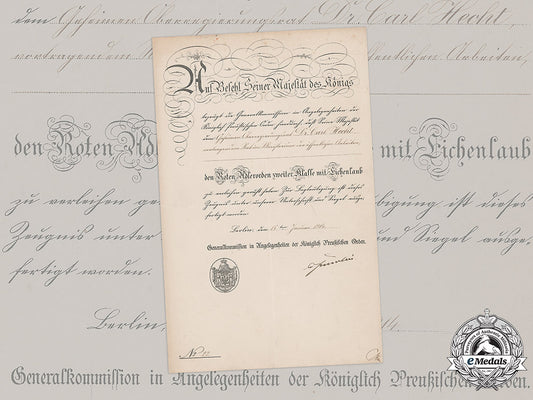 Auf Befehl Seiner Majestät des Königs
bezeugt die Generalkommission in Angelegenheiten der
Königlich Preußischen Orden hierdurch, daß Seine Majestät
dem Geheimen Oberregierungsrat Dr. Carl Hecht,
vortragendem Rat im Ministerium der öffentlichen Arbeiten,
den Roten Adlerorden zweiter Klasse mit Eichenlaub
zu verleihen geruht haben. Zur Beglaubigung ist dieses
Zeugnis unter unserer Unterschrift und Siegel ausge-
fertigt worden.
Berlin, den Januar
Generalkommission in Angelegenheiten der Königlich Preußischen Orden.
No
dem Geheimen Oberregierungsrat Dr. Carl Hecht,
vortragendem fentlichen Arbeiten,
den Roten Adl mit Eichenlaub
zu verleihen ge bigung ist dieses
Zeugnis unter und Siegel ausge,
fertigt worden.
Berlin,
Generalkommission in Angelegenheiten der Königlich Preußischen den.
eMedals